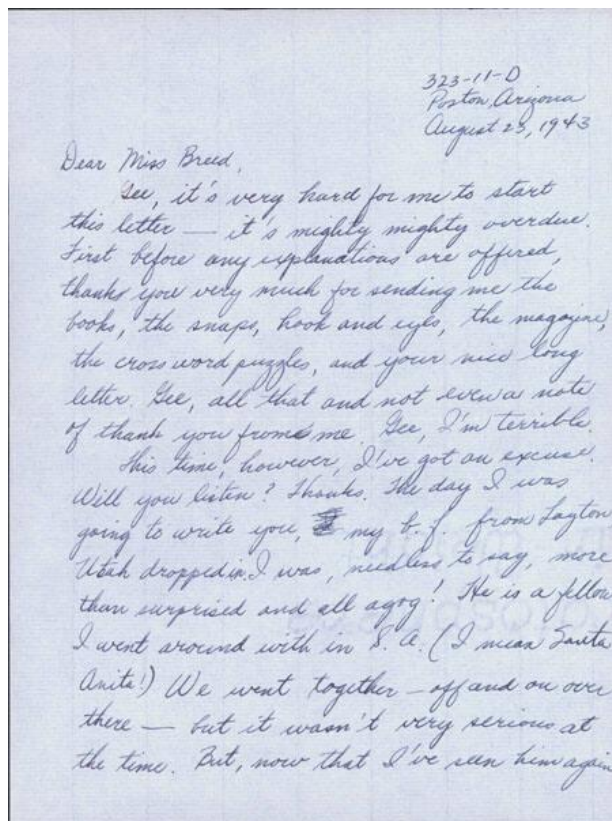 323-11-D
Poston, Arizona
August 23, 1943
Dear Miss Breed,
Gee, it's very hard for me to start
this letter — it's mighty mighty overdue.
First before any explanations are offered,
thanks you very much for sending me the
books, the snaps, hook and eyes, the magazine,
the crossword puzzles, and your nice long
letter. Gee, all that and not even a note
of thank you from me. Gee, I'm terrible.
This time, however, I've got an excuse.
Will you listen? Thanks. The day I was
going to write you, my b.f. from Layton
Utah dropped in. I was, needless to say, more
than surprised and all agog! He is a fellow
I went around with in S.A. (I mean Santa
Anita!) We went together — off and on over
there — but it wasn't very serious at
the time. But, now that I've seen him again